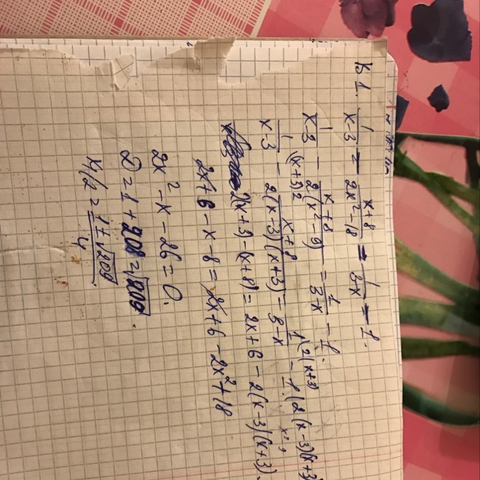 B 1. 1/(x-3) - (x+8)/(2x²-18) = 1/(3-x) - 1.
1/(x-3) - (x+8)/(2(x²-9)) = 1/(3-x) - 1.
1/(x-3) (x+3)2 - (x+8)/(2(x-3)(x+3)) = 1/(3-x) (2(x+3) - 1 (2(x-3)(x+3)
2(x+3-(x+8) = 2x+6-2(x-3)(x+3).
2x+6-x-8 = 2x+6-2x²+18
2x²-x-26=0.
D=1+208=√209
x1/2 = (1±√209)/4